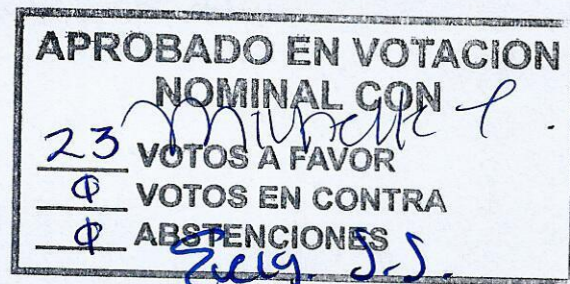 APROBADO EN VOTACION
NOMINAL CON
23 VOTOS A FAVOR
0 VOTOS EN CONTRA
0 ABSTENCIONES